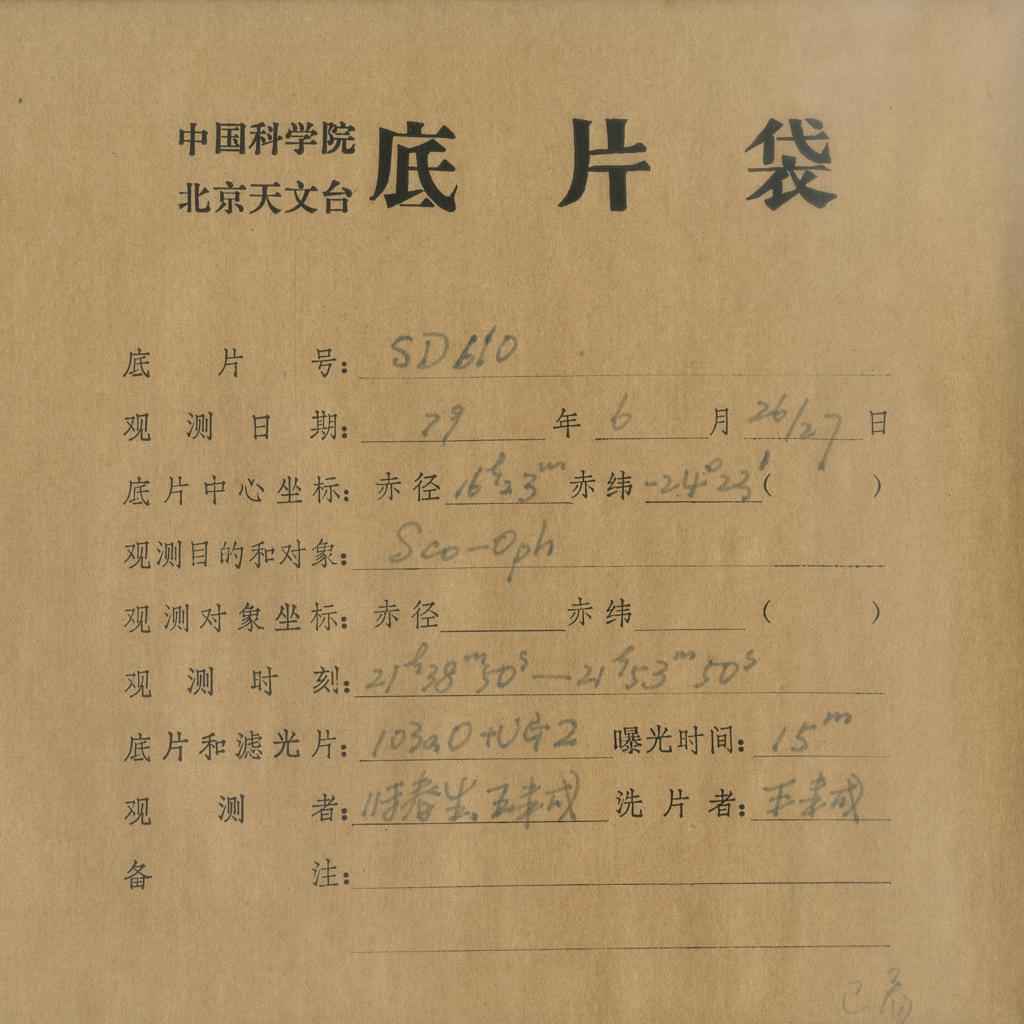 中国科学院
北京天文台
底片袋
底片号：SD610
观测日期：79年6月26/27日
底片中心坐标：赤径16ʰ23ᵐ赤纬-24°23′（ ）
观测目的和对象：Sco-Oph
观测对象坐标：赤径 赤纬 （ ）
观测时刻：21ʰ38ᵐ50ˢ—21ʰ53ᵐ50ˢ
底片和滤光片：103aO+UG2 曝光时间：15ᵐ
观测者： 洗片者：
备注：